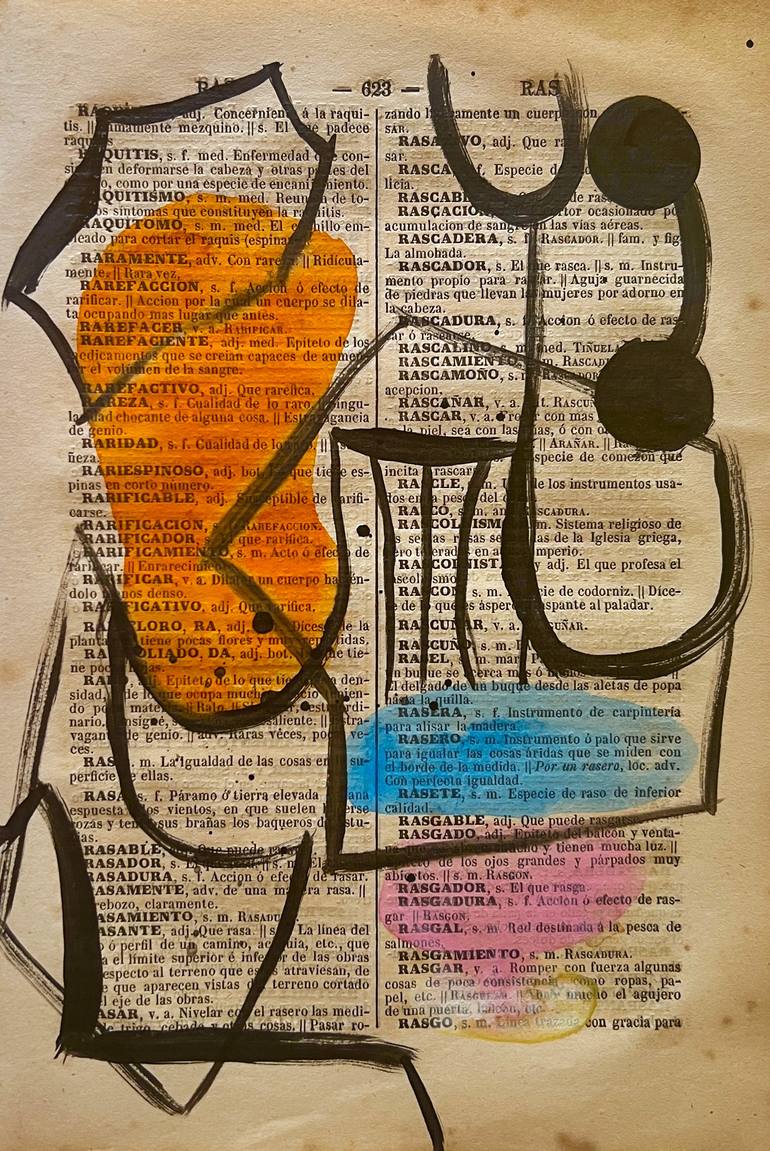 — 623 —
RAS
adj. Concerniente á la raqui-
tis. || mamente mezquino. || s. El que padece
RAQUITIS, s. f. med. Enfermedad que con-
en deformarse la cabeza y otras partes del
como por una especie de encanijamiento.
RAQUITISMO, s. m. med. Reunion de to-
os síntomas que constituyen la raquitis.
RAQUITOMO, s. m. med. El cuchillo em-
pleado para cortar el raquis (espinazo).
RARAMENTE, adv. Con rareza. || Ridícula-
mente. || Rara vez.
RAREFACCION, s. f. Accion ó efecto de
rarificar. || Accion por la cual un cuerpo se dila-
ta ocupando mas lugar que antes.
RAREFACER, v. a. RARIFICAR.
RAREFACIENTE, adj. med. Epiteto de los
medicamentos que se creian capaces de aumen-
tar el volumen de la sangre.
RAREFACTIVO, adj. Que rarefica.
RAREZA, s. f. Cualidad de lo raro, singu-
laridad chocante de alguna cosa. || Estravagancia
de genio.
RARIDAD, s. f. Cualidad de lo
ñeza.
RARIESPINOSO, adj. bot. que tiene es-
pinas en corto número.
RARIFICABLE, adj. Susceptible de rarifi-
carse.
RARIFICACION, s. f. RAREFACCION.
RARIFICADOR, que rarifica.
RARIFICAMIENTO, s. m. Acto ó efecto de
rarificar. || Enrarecimiento.
RARIFICAR, v. a. Dilatar un cuerpo hacién-
dolo menos denso.
RARIFICATIVO, adj. Que rarifica.
RARIFLORO, RA, adj. Dícese de
plantas tiene pocas flores y muy repartidas.
RARIFOLIADO, DA, adj. bot. que tie-
ne pocas
Epiteto de lo que tiene
sidad, que ocupa mucho
do poca materia. || Ralo. || Escaso, estraordi-
nario. Insigne, sobresaliente. || Estra-
vagante de genio. || adv. Raras véces, pocas ve-
ces.
RAS, s. m. La igualdad de las cosas en la su-
perficie de ellas.
RASA, s. f. Páramo ó tierra elevada
espuesta á los vientos, en que suelen
sus brañas los baqueros
RASABLE, adj. Que puede rasarse.
RASADOR, s. El
RASADURA, s. f. Accion ó efecto de rasar.
RASAMENTE, adv. de una manera rasa. ||
rebozo, claramente.
RASAMIENTO, s. m. RASADURA.
RASANTE, adj. Que rasa. || s. La línea del
ó perfil de un camino, acequia, etc., que
a el límite superior é inferior de las obras
respecto al terreno que es atraviesan, de
que aparecen vistas terreno cortado
el eje de las obras.
RASAR, v. a. Nivelar con el rasero las medi-
de trigo, cebada y otras cosas. || Pasar ro-
RAS
zando ligeramente un cuerpo con
SAR.
RASATIVO, adj. Que
sar.
s. f. Especie de
licia.
RASCACION,
acumulacion de sangre en las vias aéreas.
RASCADERA, s. f. RASCADOR. || fam. y fig.
La almohada.
RASCADOR, s. El que rasca. || s. m. Instru-
mento propio para rascar. || Aguja guarnecida
de piedras que llevan las mujeres por adorno en
la cabeza.
RASCADURA, s. f. Accion ó efecto de ras-
car ó rascarse.
RASCALINO, s. m. med. TIÑUELA
RASCAMIENTO, s. m. RASCADURA
RASCAMOÑO, s. m.
acepcion.
RASCAÑAR, v. a. ant. RASCUÑAR
RASCAR, v. a. con mas
la piel, sea con las uñas, ó con
|| ARAÑAR. ||
especie de comezon que
incita á rascarse.
RASCLE, de los instrumentos usa-
dos en la pesca del
RASCO, s. m. ant. RASCADURA.
RASCOLNISMO, s. m. Sistema religioso de
sectas rusas de la Iglesia griega,
pero toleradas en aquel imperio.
RASCOLNISTA, s. y adj. El que profesa el
rascolnismo.
RASCON, especie de codorniz. || Díce-
se de lo que es áspero ó raspante al paladar.
RASCUÑAR, v. a. RASGUÑAR.
RASCUÑO, s. m.
RASEL, s. m. mar.
un buque se acerca mas ó menos
delgado de un buque desde las aletas de popa
hasta la quilla.
RASERA, s. f. Instrumento de carpintería
para alisar la madera.
RASERO, s. m. Instrumento ó palo que sirve
para igualar las cosas áridas que se miden con
el borde de la medida. || Por un rasero, loc. adv.
Con perfecta igualdad.
RASETE, s. m. Especie de raso de inferior
calidad.
RASGABLE, adj. Que puede rasgarse.
RASGADO, adj. Epiteto del balcon y venta-
na mucho y tienen mucha luz. ||
Epiteto de los ojos grandes y párpados muy
abiertos. || s. m. RASGON.
RASGADOR, s. El que rasga.
RASGADURA, s. f. Accion ó efecto de ras-
gar || RASGON.
RASGAL, s. m. Red destinada á la pesca de
salmones.
RASGAMIENTO, s. m. RASGADURA.
RASGAR, v. a. Romper con fuerza algunas
cosas de poca consistencia, como ropas, pa-
pel, etc. || RASGUEAR. || Abrir mucho el agujero
de una puerta, balcon, etc.
RASGO, s. m. Línea trazada con gracia para